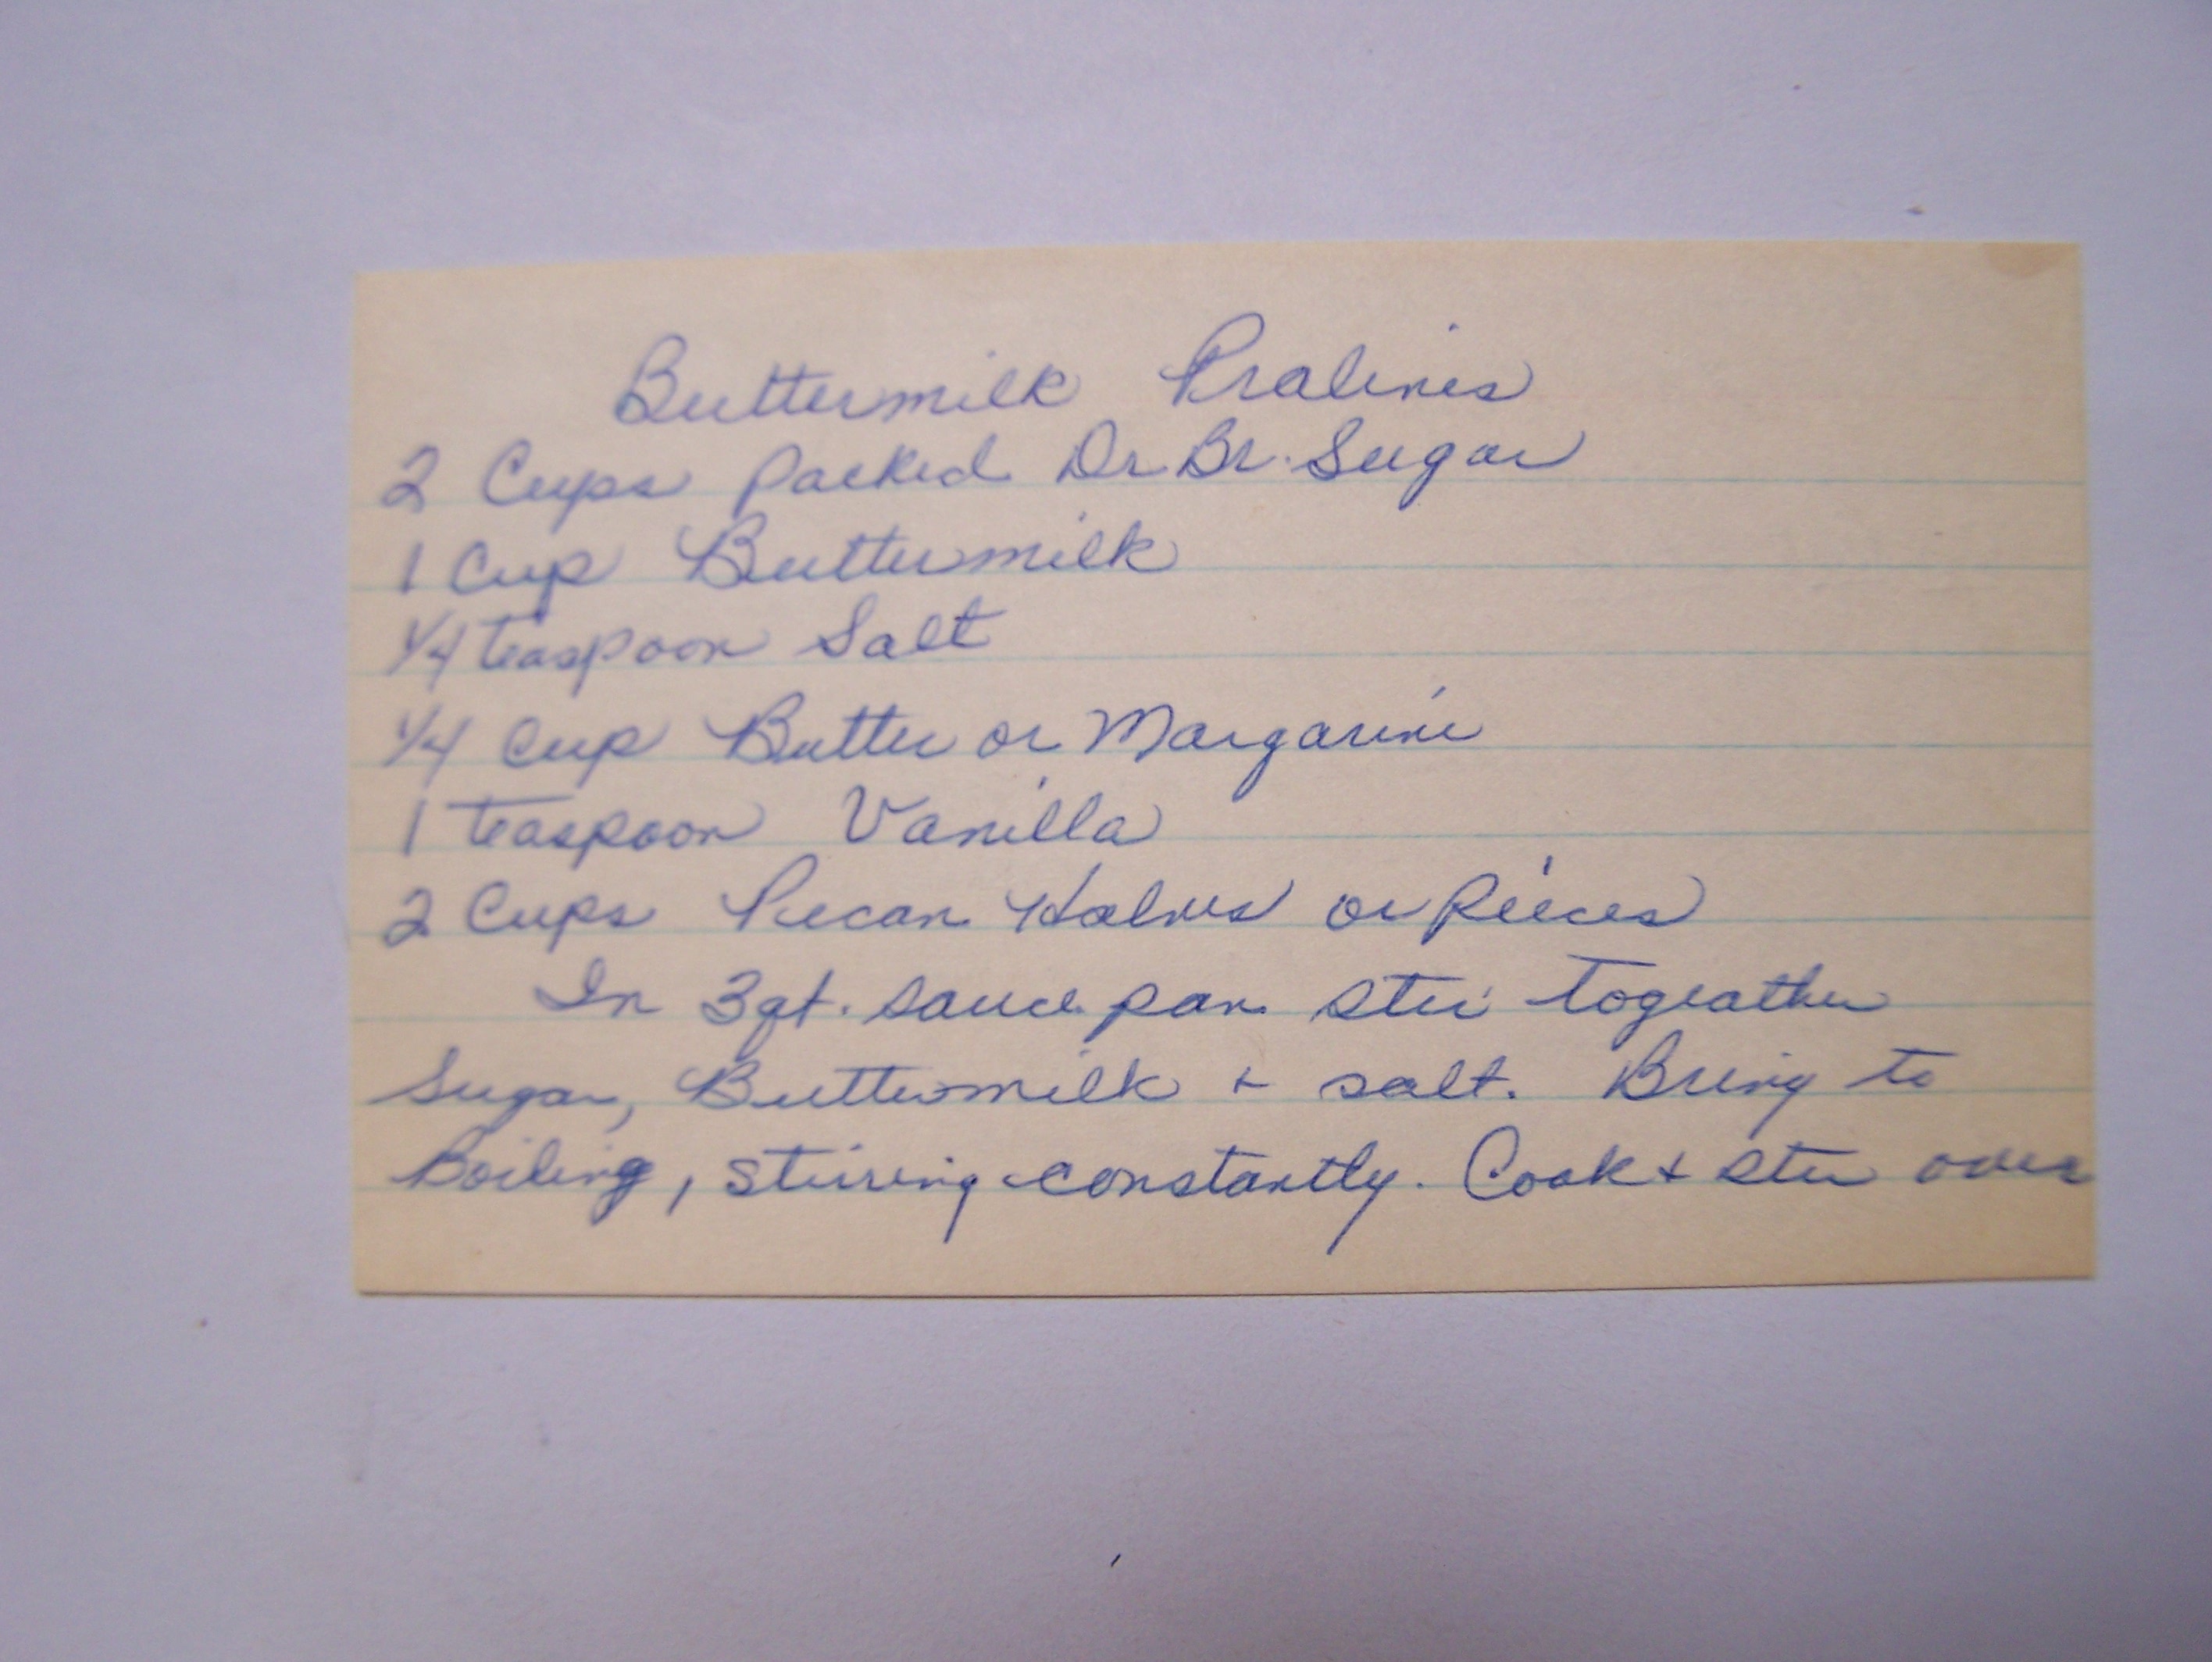 Buttermilk Pralines
2 Cups Packed Dr Br. Sugar
1 Cup Buttermilk
1/4 teaspoon Salt
1/4 Cup Butter or Margarine
1 teaspoon Vanilla
2 Cups Pecan Halves or Pieces
In 3 qt. sauce pan stir togeather
Sugar, Buttermilk + salt. Bring to
Boiling, stirring constantly. Cook + stir over